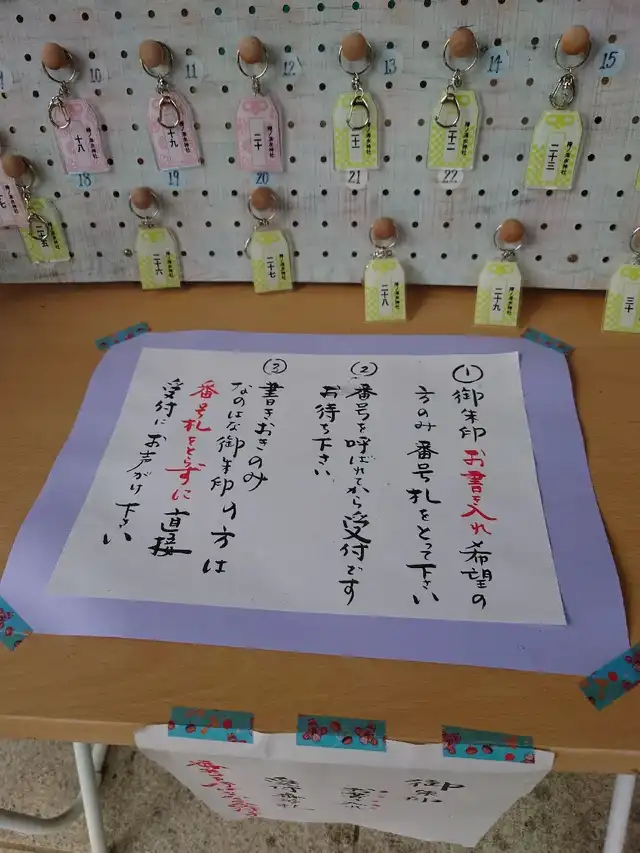 10
11
12
13
14
15
18
19
20
21
22
十八
十九
二十
二十一
二十二
二十三
二十五
二十六
二十七
二十八
二十九
三十
①御朱印お書き入れ希望の
方のみ番号札をとって下さい
②番号を呼ばれてから受付です
お待ち下さい
③書きおきのみ
なのはな御朱印の方は
番号札をとらずに直接
受付にお声がけ下さい
御朱印